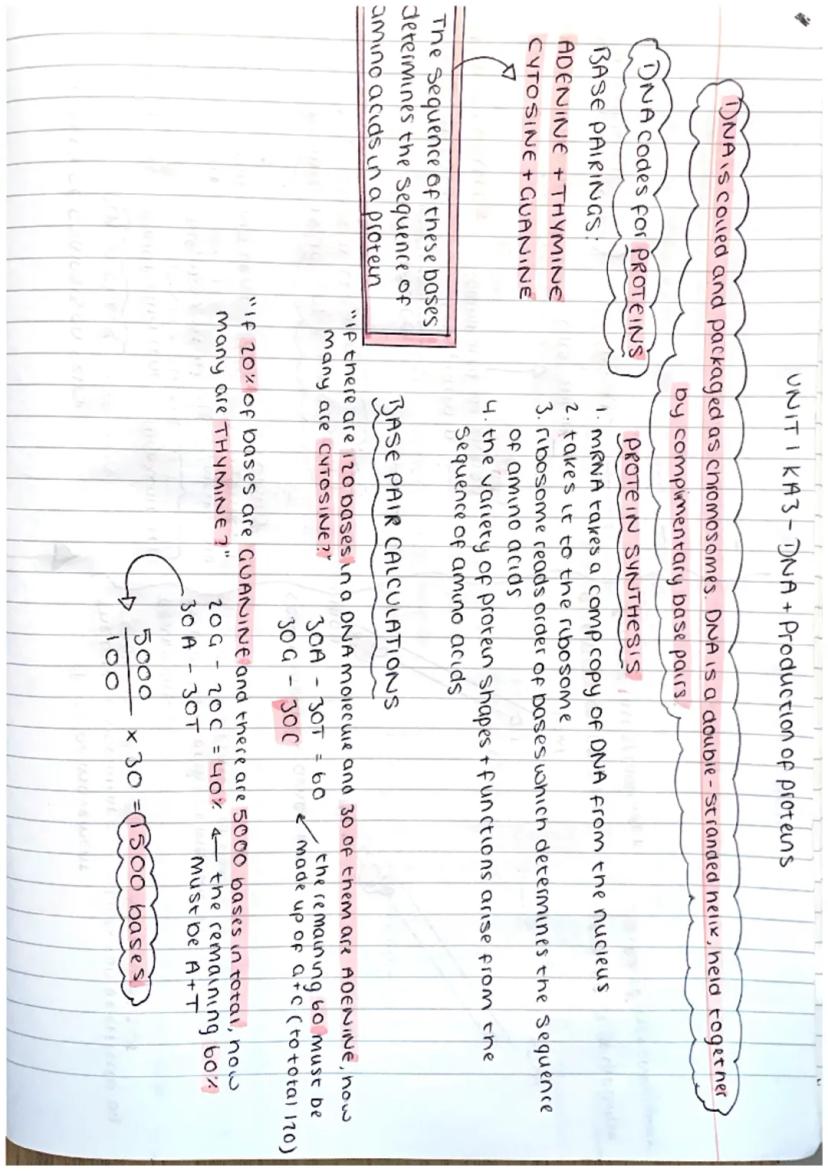 UNIT 1 KA3 - DNA + Production of proteins
DNA is coiled and packaged as chromosomes. DNA is a double-stranded helix, held together
by complimentary base pairs.
DNA codes for PROTEINS
BASE PAIRINGS:
ADENINE + THYMINE
CYTOSINE + GUANINE
The sequence of these bases
determines the sequence of
amino acids in a protein
PROTEIN SYNTHESIS
1. mRNA takes a comp copy of DNA from the nucleus
2. takes it to the ribosome
3. ribosome reads order of bases which determines the sequence
of amino acids
4. the variety of protein shapes + functions arise from the
sequence of amino acids
BASE PAIR CALCULATIONS
"If there are 120 bases in a DNA molecule and 30 of them are ADENINE, how
many are CYTOSINE?"
30A - 30T = 60
30G - 30C
the remaining 60 must be
made up of G+C (to total 120)
"If 20% of bases are GUANINE and there are 5000 bases in total, how
many are THYMINE?"
20G - 20C = 40% ← the remaining 60%
30A - 30T
must be A+T
5000
100
× 30 = 1500 bases